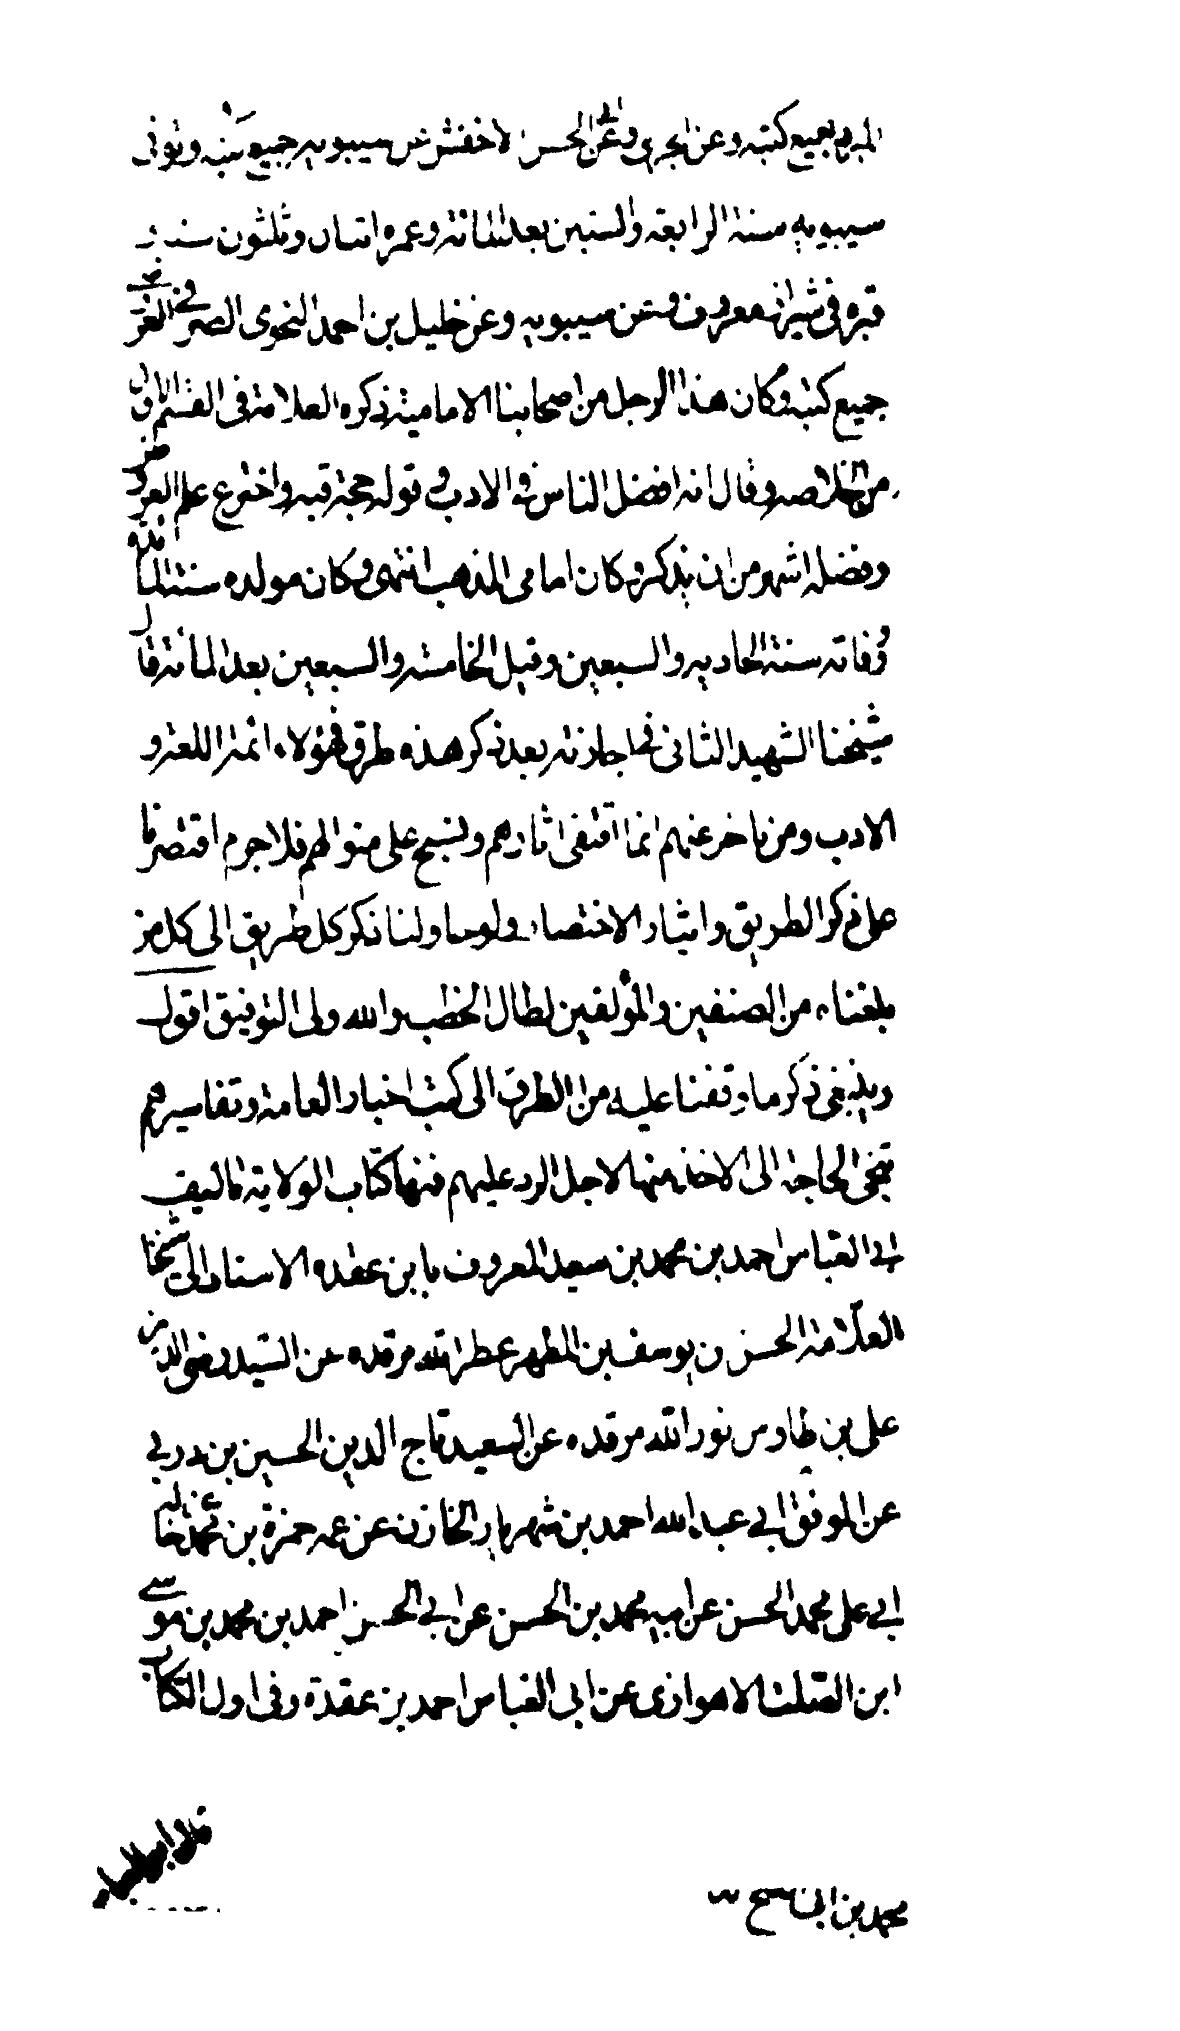 المبرد بجميع كتبه وعن الجرمي وعن الحسن الاخفش عن سيبويه جميع كتبه وتوفى
سيبويه سنة الرابعة والستين بعد المائة وعمره اثنان وثلثون سنة
قبره في شيراز معروف وعن سيبويه وعن خليل بن احمد النحوى الصرفي
جميع كتبه وكان هذا الرجل من اصحابنا الامامية ذكره العلامة في القسم الاول
من الخلاصه وقال انه افضل الناس في الادب وقوله حجة فيه واخترع علم العروض
وفضله اشهر من ان يذكر وكان امامى المذهب انتهى وكان مولده سنة المائة
وفاته سنة الحاديه والسبعين وقيل الخامسة والسبعين بعد المائة قال
شيخنا الشهيد الثانى في اجازته بعد ذكر هذه طرق هؤلاء ائمة اللغة و
الادب ومن تاخر عنهم انما اقتفى اثارهم ونسج على منوالهم فلا جرم اقتصرنا
على ذكر الطريق وايثار الاختصار ولو حاولنا ذكر كل طريق الى كل من
بلغناه من المصنفين والمؤلفين لطال الخطب والله ولى التوفيق اقول
وينبغى ذكر ما وقفنا عليه من الطرق الى كتب اخبار العامة وتفاسيرهم
الحاجة الى الاخذ منها لاجل الرد عليهم فمنها كتاب الولاية تاليف
ابي العباس احمد بن محمد بن سعيد المعروف بابن عقده الاسناد الى شيخنا
العلامة الحسن بن يوسف بن المطهر عطر الله مرقده عن السيد رضى الدين
على بن طاوس نور الله مرقده عن السعيد تاج الدين الحسين بن دربي
عن الموفق ابي عبد الله احمد بن شهريار الخازن عن عمه حمزة بن محمد عن خاله
ابي على محمد الحسن عن ابيه محمد بن الحسن عن ابي الحسن احمد بن محمد بن موسى
ابن الصلت الاهوازى عن ابى العباس احمد بن عقدة وفى اول الكتاب
محمد بن ابى